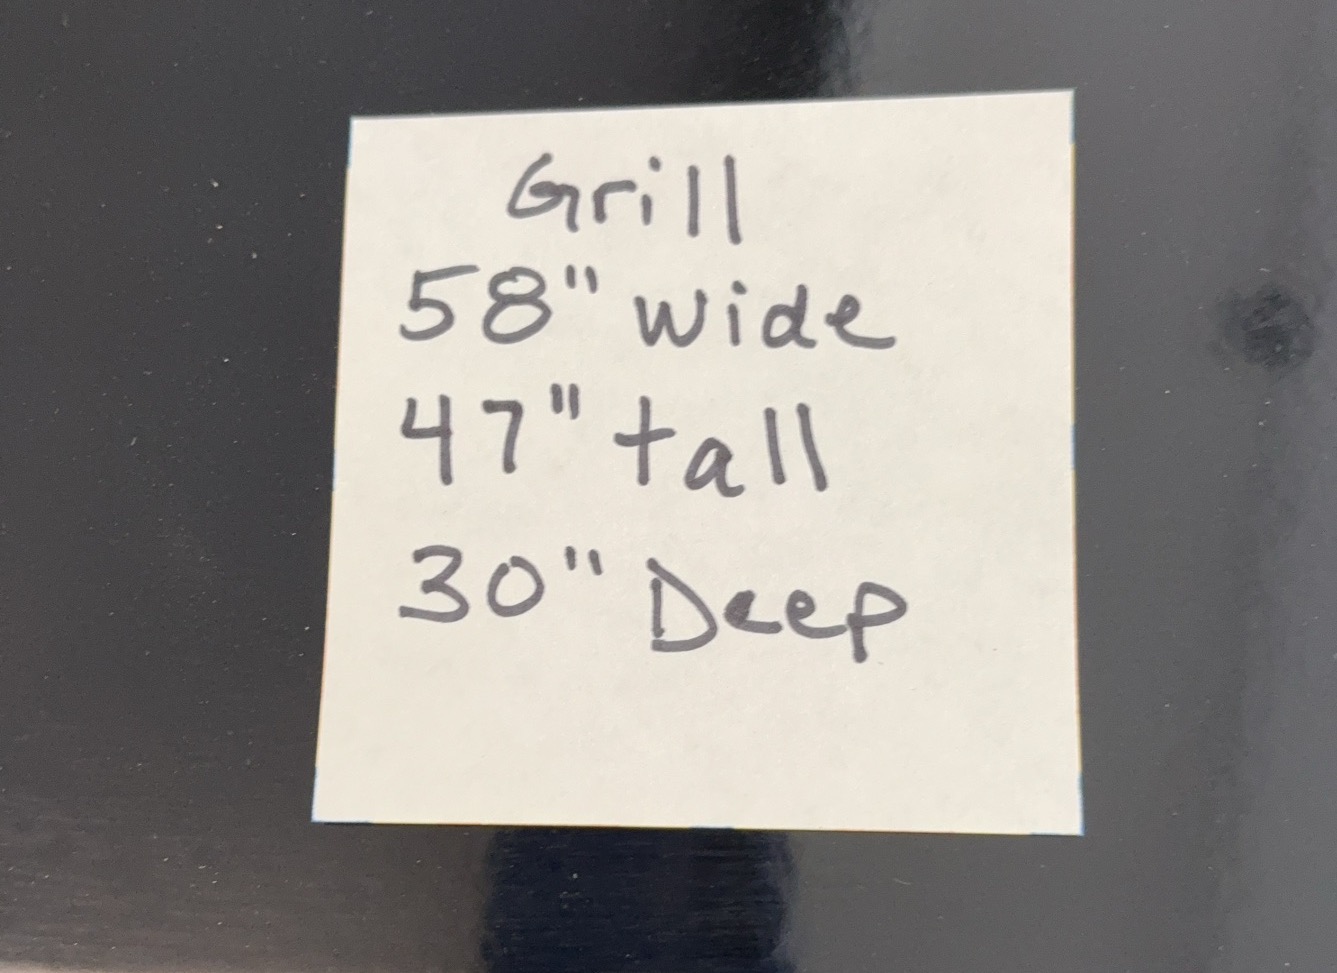 Grill
58" wide
47" tall
30" Deep